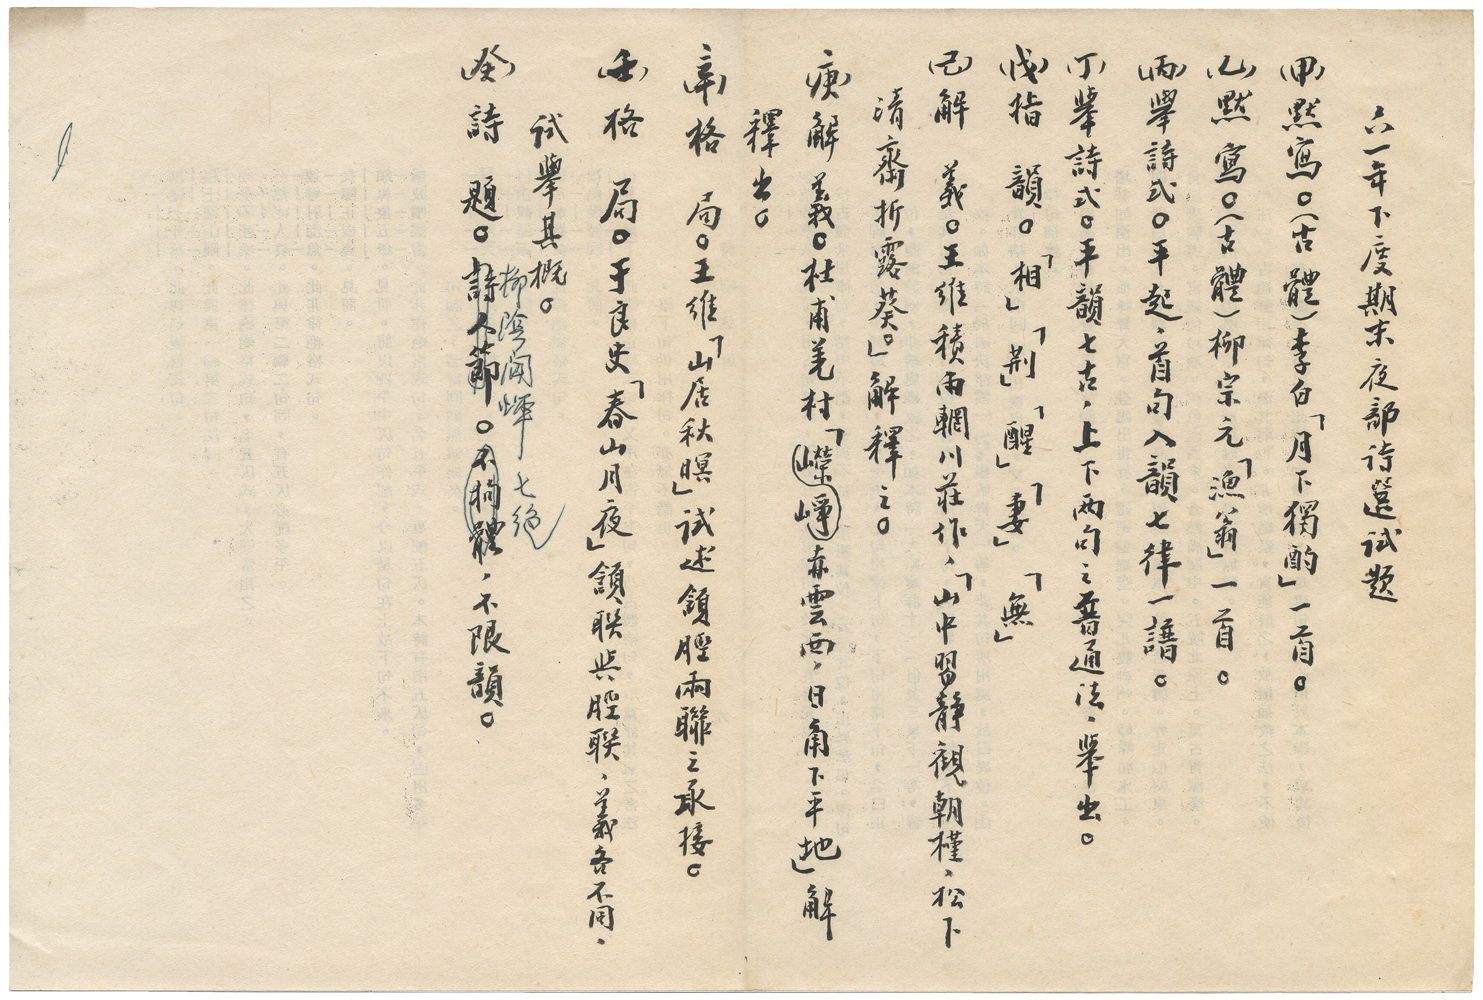 六一年下度期末夜部詩選試題
(甲)默寫。(古體)李白「月下獨酌」一首。
(乙)默寫。(古體)柳宗元「漁翁」一首。
(丙)舉詩式。平起、首句入韻七律一譜。
(丁)舉詩式。平韻七古、上下兩句之普通法、舉出。
(戊)指韻。「相」「荆」「醒」「妻」「無」
(己)解義。王維積雨輞川莊作、「山中習静觀朝槿、松下
清齋折露葵。」解釋之。
(庚)解義。杜甫羌村「崢嶸赤雲西、日角下平地」解
釋出。
(辛)格局。王維「山居秋暝」試述頷脛兩聯之承接。
(壬)格局。于良史「春山月夜」頷联與脛联、義各不同、
試舉其概。
柳陰闻蟬七绝
(癸)詩題。詩人節。不拘體、不限韻。